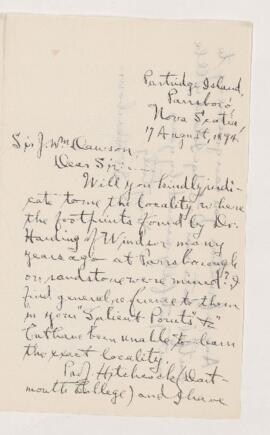 Partridge Island,
Parrsboro',
Nova Scotia,
17 August, 1894.
Sir J. Wm Dawson,
Dear Sir:—
Will you kindly indi-
cate to me the locality where
the footprints found by Dr.
Harding of Windsor many
years ago at Parrsborough
on sandstone were found? I
find general reference to them
in your "Salient Points" &c
but have been unable to learn
the exact locality.
Prof Hitchcock (Dart-
mouth College) and I have